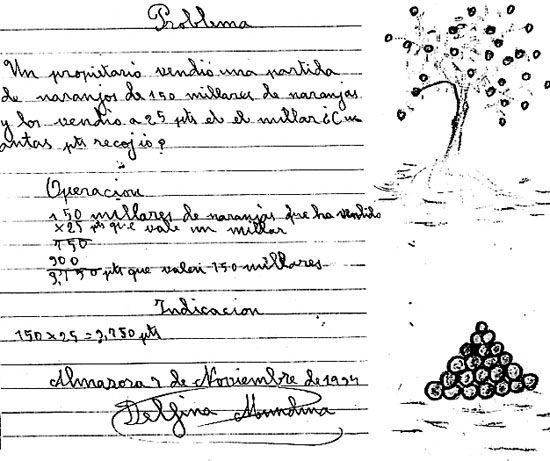 Problema
Un propitario vendió una partida
de naranjos de 150 millares de naranjas
y los vendio a 25 pts el el millar ¿Cu
antas pts recojio?
Operacion
150 millares de naranjas que ha vendido
×25 pts que vale un millar
750
300
3,750 pts que valen 150 millares
Indicacion
150×25=3,750 pts
Almasora 7 de Noviembre de 1934
Delfina Mundina